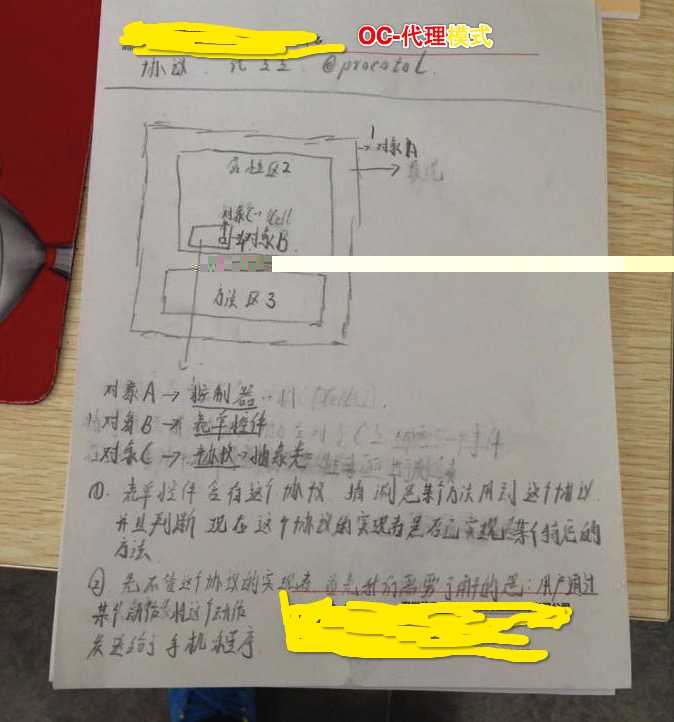 OC-代理模式
协议 @procotol
1
对象A
属性区2
对象C Cell
对象B
方法区3
对象A → 控制器
对象B → 表单控件
对象C → 协议 → 抽象类
①. 表单控件含有这个协议 某个方法用到这个协议
并且判断 现在这个协议的实现者是否已实现某个特定的
方法
② 这个协议的实现者 首先我们需要了解的是：用户通过
某个动作 将这个动作
发送给了手机程序